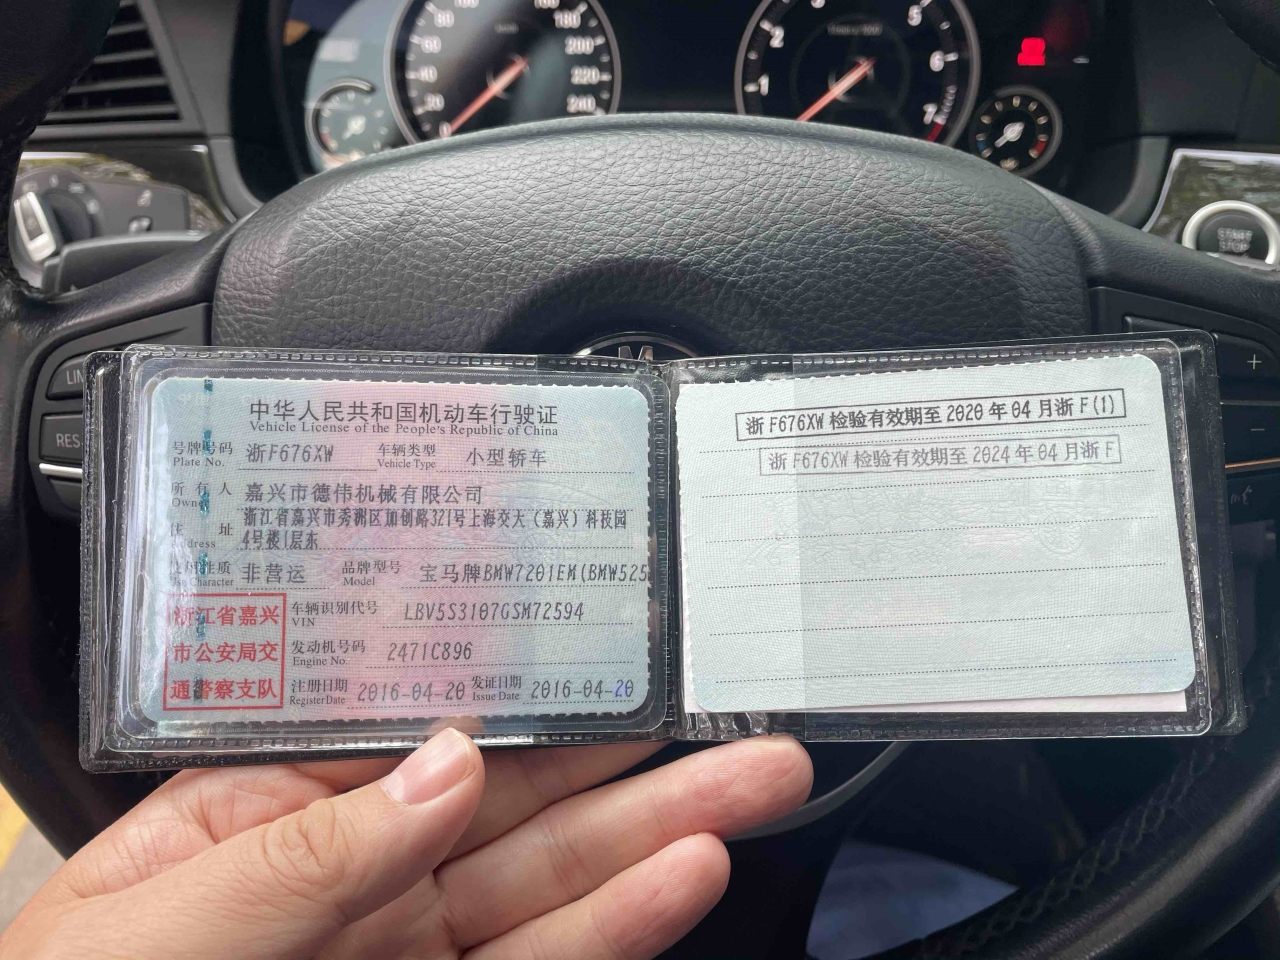 80
180
60
200
40
220
20
240
0
1
2
3
5
6
7
START
STOP
LIM
RES
+
-
M
中华人民共和国机动车行驶证
Vehicle License of the People's Republic of China
号牌号码 浙F676XW 车辆类型 小型轿车
Plate No. Vehicle Type
所有人 嘉兴市德伟机械有限公司
Owner
住址 浙江省嘉兴市秀洲区加创路321号上海交大(嘉兴)科技园
Address 4号楼1层东
使用性质 非营运 品牌型号 宝马牌BMW7201EM(BMW525
Use Character Model
浙江省嘉兴
市公安局交
通警察支队
车辆识别代号 LBV5S3107GSM72594
VIN
发动机号码 2471C896
Engine No.
注册日期 2016-04-20 发证日期 2016-04-20
Register Date Issue Date
浙F676XW 检验有效期至 2020 年 04 月浙 F(1)
浙F676XW 检验有效期至 2024 年 04 月浙 F